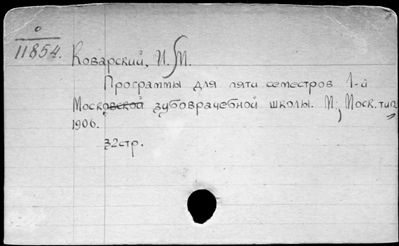 0
11854.
Коварский, И. М.
Программы для пяти семестров 1-й
Московской зубоврачебной школы. М., Моск. тип.
1906.
32стр.